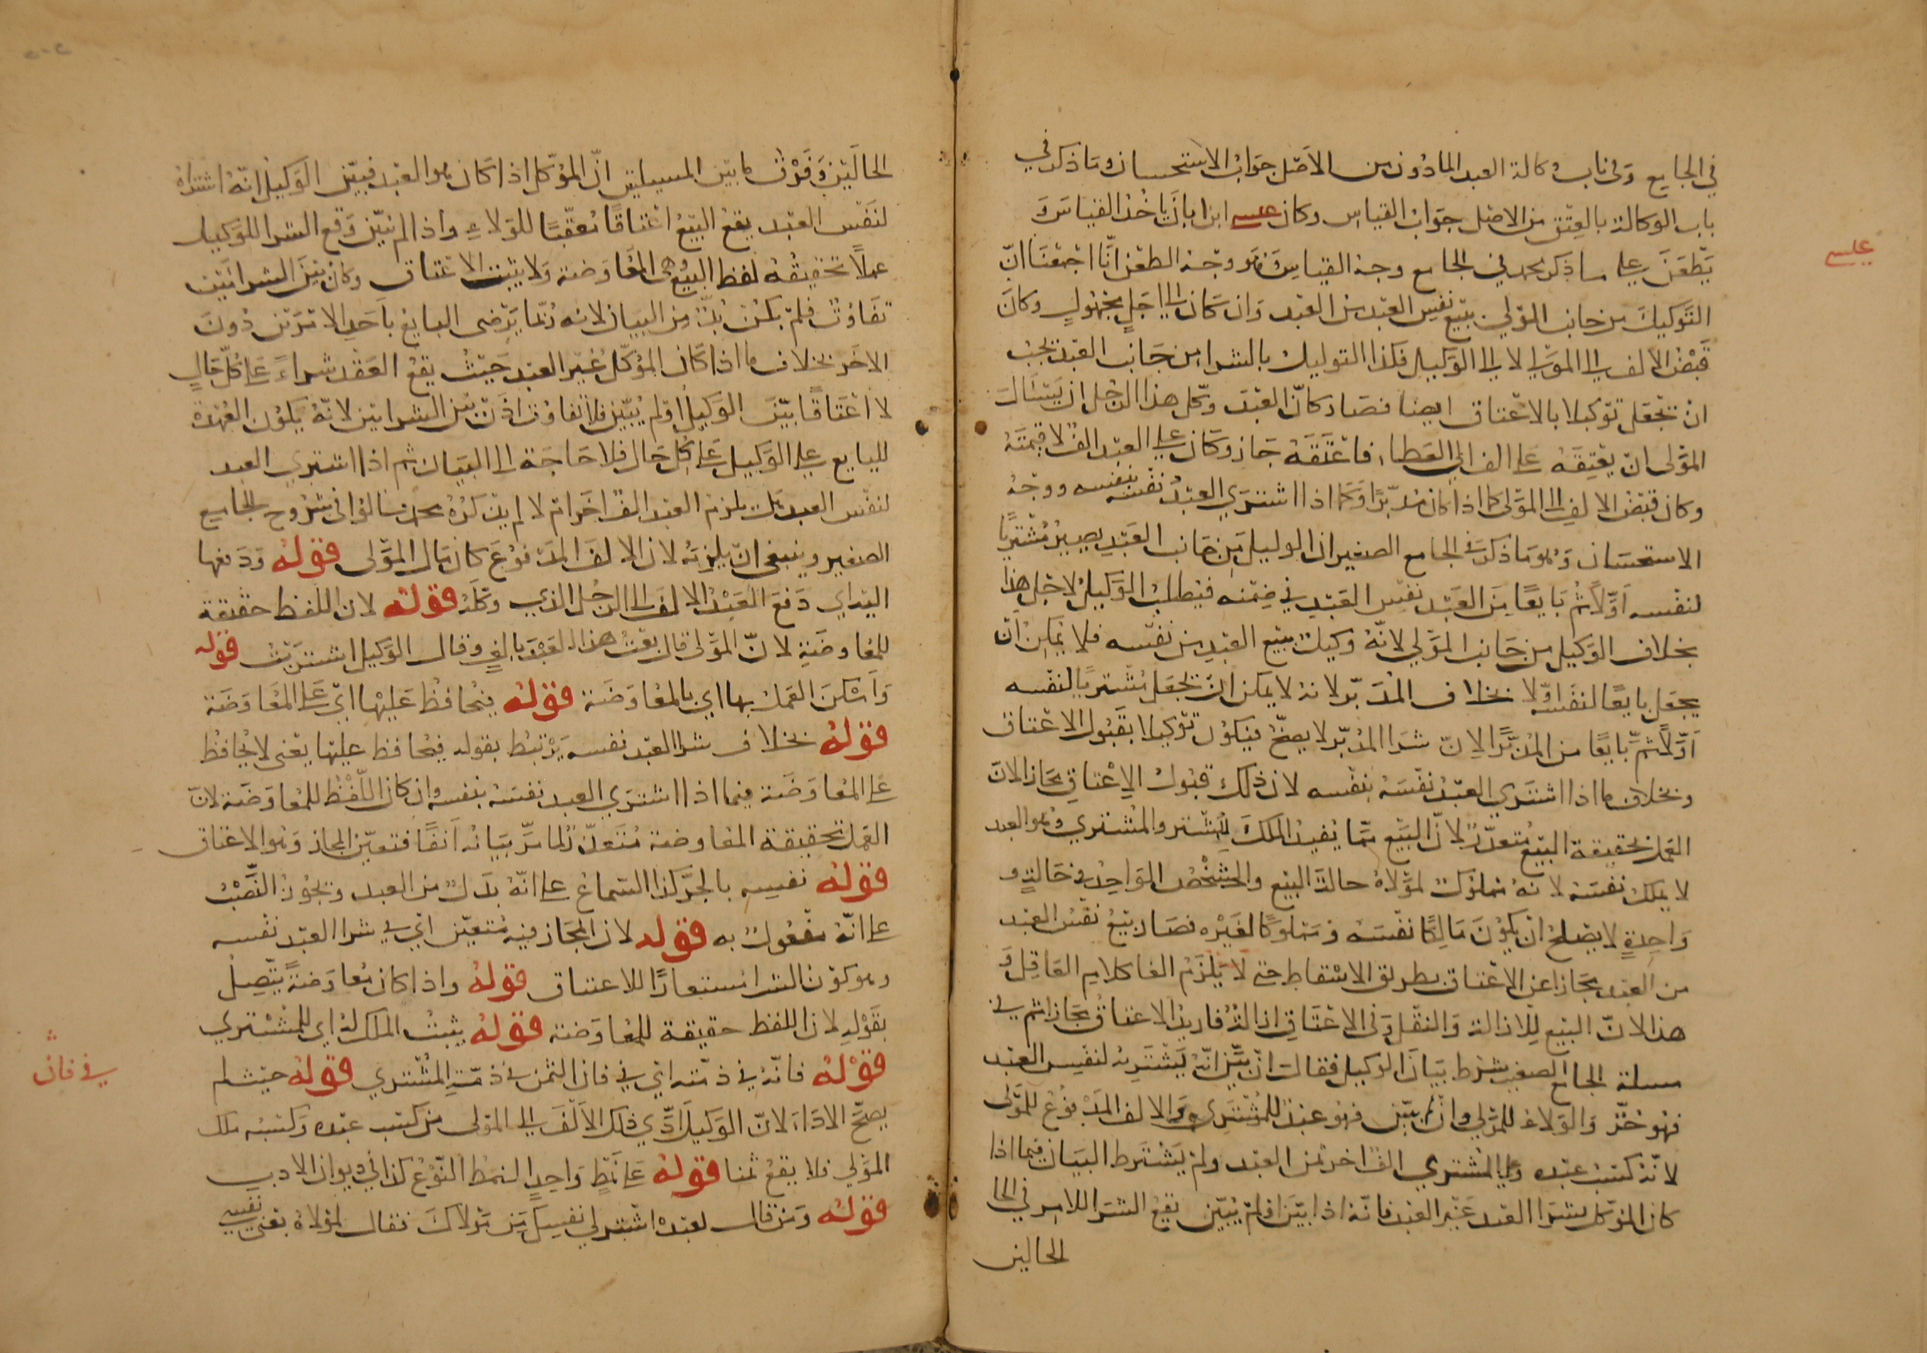 في الجامع وفي باب وكالة العبد الماذون من الاصل جواب الاستحسان وما ذكر في
باب الوكالة بالعتق من الاصل جواب القياس وكان عيسى ابن ابان ياخذ بالقياس و
عيسى
يطعن على ما ذكر محمد في الجامع وجه القياس وهو وجه الطعن انا اجمعنا ان
التوكيل من جانب المولى ببيع نفس العبد من العبد وان كان الى اجل مجهول وكان
قبض الالف الى المولى لا الى الوكيل فكذا التوكيل بالشرا من جانب العبد يجب
ان يجعل توكيلا بالاعتاق ايضا فصار كان العبد وكل هذا الرجل ان يسال
المولى ان يعتقه على الف الى العطا فاعتقه جاز وكان على العبد الف لا قيمته
وكان قبض الالف الى المولى كما اذا كان مدبرا وكما اذا اشترى العبد نفسه بنفسه ووجه
الاستحسان وهو ما ذكر في الجامع الصغير ان الوكيل من جانب العبد يصير مشتريا
لنفسه اولا ثم بايعا من العبد نفس العبد في ضمنه فيطلب الوكيل لاجل هذا
بخلاف الوكيل من جانب المولى لانه وكيل ببيع العبد من نفسه فلا يمكن ان
يجعل بايعا لنفسه اولا بخلاف المدبر لانه لا يمكن ان يجعل مشتريا لنفسه
اولا ثم بايعا من المدبر الان شرا المدبر لا يصح فيكون توكيلا بقبول الاعتاق
وبخلاف ما اذا اشترى العبد نفسه بنفسه لان ذلك قبول الاعتاق مجازا لان
العمل بحقيقة البيع متعذر لان البيع مما يفيد الملك للمشتري والمشتري وهو العبد
لا يملك نفسه لانه مملوك لمولاه حالة البيع والشخص الواحد في حالة و
واحدة لا يصلح ان يكون مالكا نفسه ومملوكا لغيره فصار بيع نفس العبد
من العبد مجازا عن الاعتاق بطريق الاسقاط حتى لا يلزم الغا كلام العاقل و
هذا لان البيع للازالة والنقل وفي الاعتاق ازالة فاريد الاعتاق مجازا ثم في
مسلة الجامع الصغير شرط بيان الوكيل فقال ان بين انه يشتريه لنفس العبد
فهو حر والولاء للمولى وان لم يبين فهو عبد للمشتري والالف المدفوع للمولى
لانه كسب عبده وعلى المشتري الف اخر ثمن العبد ولم يشترط البيان فيما اذا
كان الموكل بشرا العبد غير العبد فانه اذا بين او لم يبين يقع الشرا للامر في الحا
الحالين
الحالين وفرق ما بين المسيلتين ان الموكل اذا كان هو العبد فبين الوكيل انه اشتراه
لنفس العبد يقع البيع اعتاقا معقبا للولاء واذا لم يبين وقع الشرا للوكيل
عملا بحقيقة لفظ البيع وهي المعاوضة ولا يثبت الاعتاق وكان بين الشرائين
تفاوت فلم يكن بد من البيان لانه ربما يرضى البايع باحد الامرين دون
الاخر بخلاف ما اذا كان الموكل غير العبد حيث يقع العقد شراء على كل حال
لا اعتاقا بين الوكيل او لم يبين فلا تفاوت اذن بين الشرائين لانه يكون العهدة
للبايع على الوكيل على كل حال فلا حاجة الى البيان ثم اذا اشترى العبد
لنفس العبد هل يلزم العبد الف اخر ام لا لم يذكره محمد وقالوا في شروح الجامع
الصغير وينبغي ان يلزمه لان الالف المدفوع كان مال المولى قوله ودفعها
اليه اي دفع العبد الالف الى الرجل الذي وكله قوله لان اللفظ حقيقة
للمعاوضة لان المولى قال بعت هذا العبد بالف وقال الوكيل اشتريت قوله
وامكن العمل بها اي بالمعاوضة قوله فيحافظ عليها اي على المعاوضة
قوله بخلاف شرا العبد نفسه يرتبط بقوله فيحافظ عليها يعني لا يحافظ
على المعاوضة فيما اذا اشترى العبد نفسه بنفسه وان كان اللفظ للمعاوضة لان
العمل بحقيقة المعاوضة متعذر لما مر بيانه انفا فتعين المجاز وهو الاعتاق
قوله نفسه بالجر كذا السماع على انه بدل من العبد ويجوز النصب
على انه مفعول به قوله لان المجاز فيه متعين اي في شرا العبد نفسه
وهو كون الشرا مستعارا للاعتاق قوله واذا كان معاوضة يتصل
بقوله لان اللفظ حقيقة للمعاوضة قوله يثبت الملك له اي للمشتري
قوله فانه في ذمته اي في فان الثمن في ذمة المشتري قوله حيث لم
في فان
يصح الاداء لان الوكيل ادى ذلك الالف الى المولى من كسب عبده وكسبه ملك
المولى فلا يقع ثمنا قوله على نمط واحد النمط النوع كذا في ديوان الادب
قوله ومن قال لعبد اشتر لي نفسك من مولاك فقال لمولاه بعني نفسي